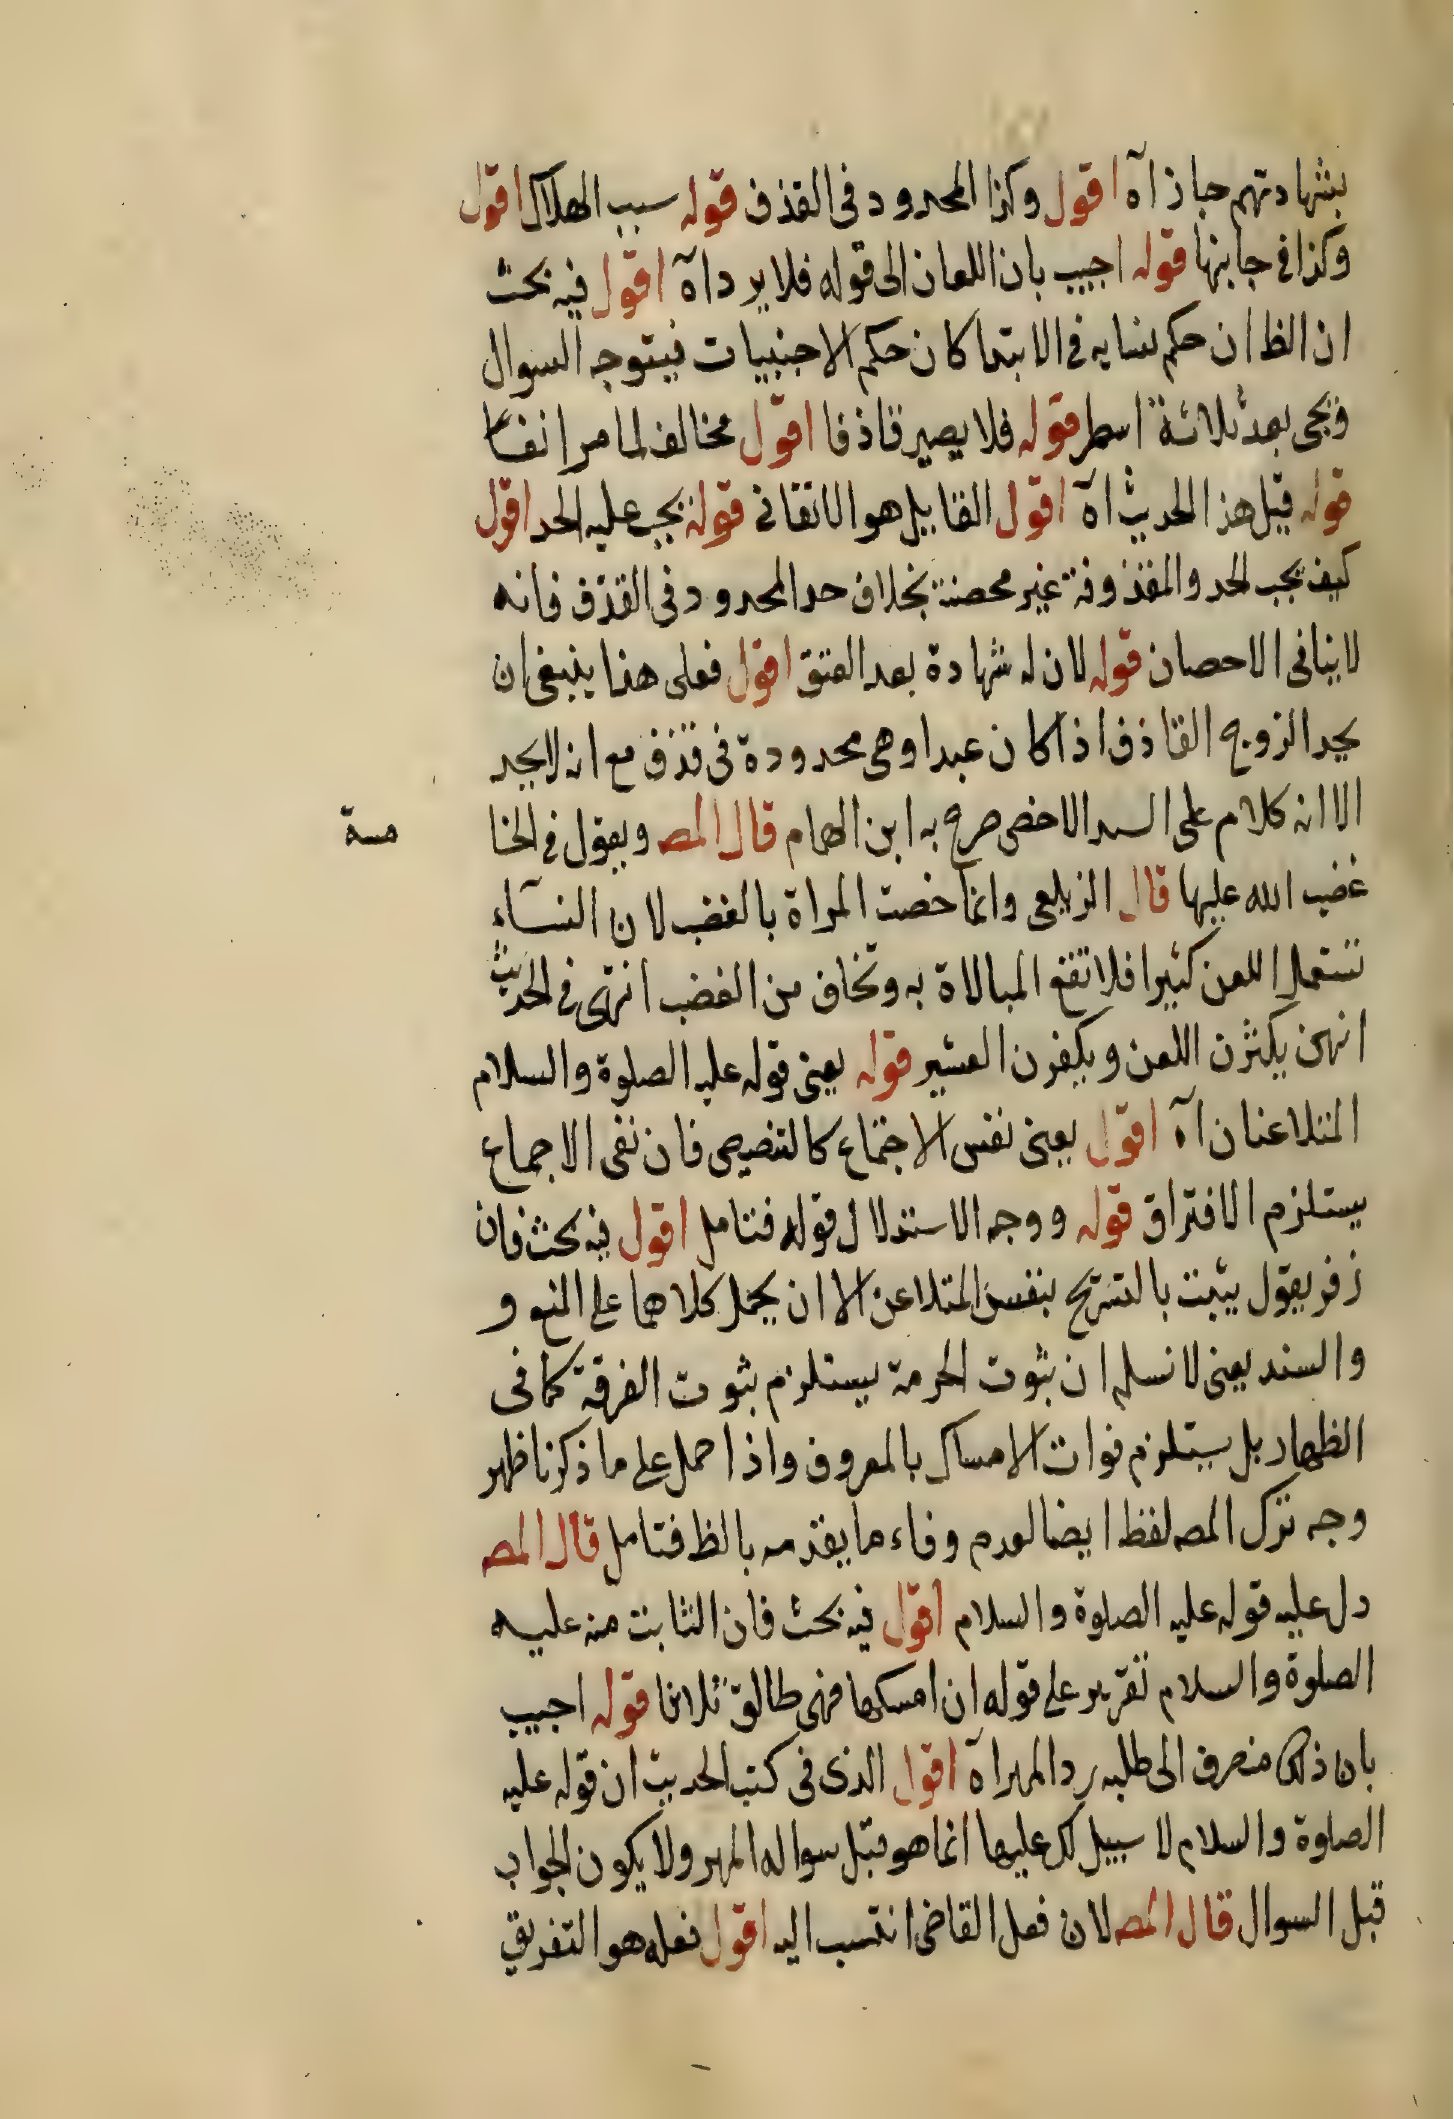 بشهادتهم جاز اه اقول وكذا المحدود في القذف قوله سبب الهلاك اقول
وكذا في جانبها قوله اجيب بان اللعان الى قوله فلا يرد اه اقول فيه بحث
ان الظ ان حكم نسايه في الابتدا كان حكم الاجنبيات فيتوجه السوال
فيجى بعد ثلاثة اسطر قوله فلا يصير قاذفا اقول مخالف لما مر انفا
قوله قيل هذا الحديث اه اقول القايل هو الاتقانى قوله يجب عليه الحد اقول
كيف يجب الحد والمقذوفة غير محصنة بخلاف حد المحدود في القذف فانه
لا ينافى الاحصان قوله لان له شهادة بعد العتق اقول فعلى هذا ينبغى ان
يحد الزوج القاذف اذا كان عبدا وهى محدودة فى قذف مع انه لا يحد
الا انه كلام على السند الاخص صرح به ابن الهمام قال المص ويقول في الخا
مسة
غضب الله عليها قال الزيلعى وانما خصت المراة بالغضب لان النساء
تستعمل اللعن كثيرا فلا تقع المبالاة به وتخاف من الغضب انتهى في الحديث
انهن يكثرن اللعن ويكفرن العشير قوله يعنى قوله عليه الصلوة والسلام
المتلاعنان اه اقول يعنى نفس الاجتماع كالتنصيص فان نفى الاجماع
يستلزم الافتراق قوله ووجه الاستدلال قوله فتامل اقول فيه بحث فان
زفر يقول يثبت بالتسريح بنفس المتلاعن الا ان يحمل كلاهما على المنع و
والسند يعنى لا نسلم ان ثبوت الحرمة يستلزم ثبوت الفرقة كما فى
الظهار بل يستلزم فوات الامساك بالمعروف واذا حمل على ما ذكرنا ظهر
وجه ترك المص لفظ ايضا لعدم وفاء ما يقدمه بالظ فتامل قال المص
دل عليه قوله عليه الصلوة والسلام اقول فيه بحث فان الثابت منه عليه
الصلوة والسلام تقرير على قوله ان امسكها فهى طالق ثلاثا قوله اجيب
بان ذلك منصرف الى طلبه رد المهر اه اقول الذى فى كتب الحديث ان قوله عليه
الصلوة والسلام لا سبيل لك عليها انما هو قبل سواله المهر ولا يكون الجواب
قبل السوال قال المص لان فعل القاضى انتسب اليه اقول فعله هو التفريق